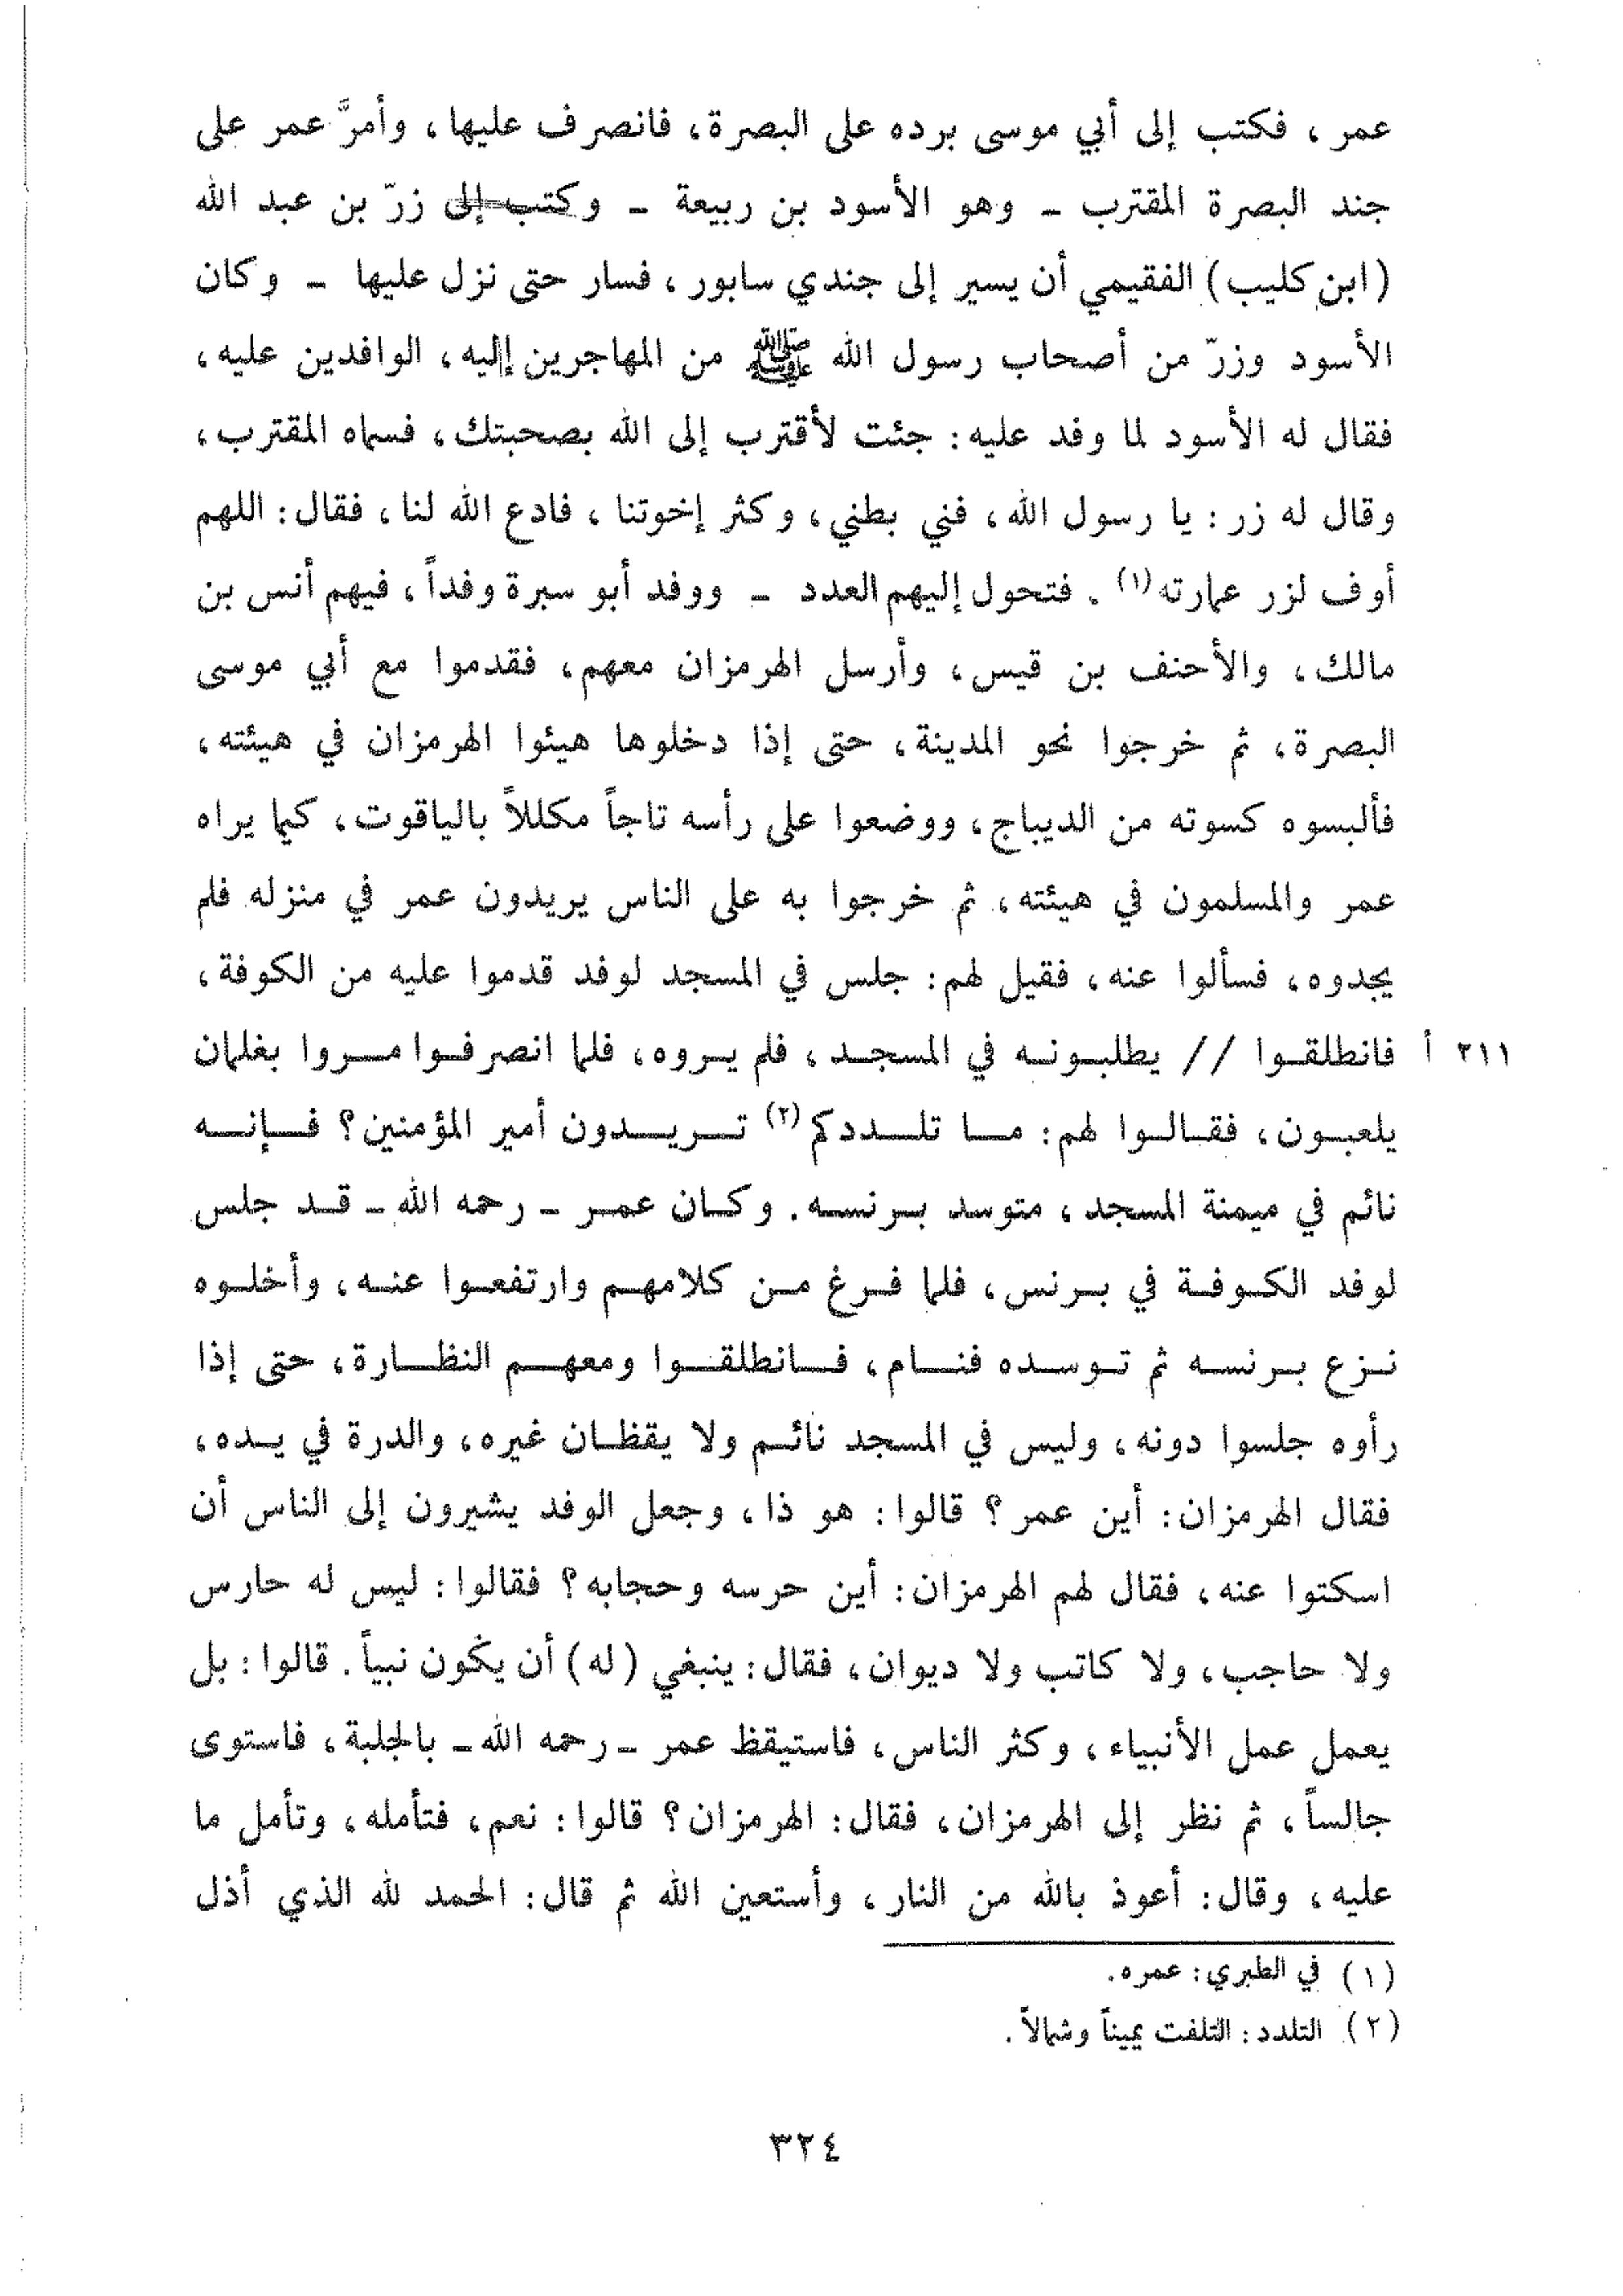 عمر ، فكتب إلى أبي موسى برده على البصرة، فانصرف عليها، وأمرَّ عمر على
جند البصرة المقترب – وهو الأسود بن ربيعة – وكتب إلى زرّ بن عبد الله
(ابن كليب) الفقيمي أن يسير إلى جندي سابور ، فسار حتى نزل عليها – وكان
الأسود وزرّ من أصحاب رسول الله ﷺ من المهاجرين إليه، الوافدين عليه،
فقال له الأسود لما وفد عليه: جئت لأقترب إلى الله بصحبتك، فسماه المقترب،
وقال له زر : يا رسول الله، فني بطني، وكثر إخوتنا ، فادع الله لنا ، فقال: اللهم
أوف لزر عمارته(١) . فتحول إليهم العدد – ووفد أبو سبرة وفداً ، فيهم أنس بن
مالك، والأحنف بن قيس، وأرسل الهرمزان معهم، فقدموا مع أبي موسى
البصرة، ثم خرجوا نحو المدينة، حتى إذا دخلوها هيئوا الهرمزان في هيئته،
فألبسوه كسوته من الديباج، ووضعوا على رأسه تاجاً مكللاً بالياقوت، كيما يراه
عمر والمسلمون في هيئته، ثم خرجوا به على الناس يريدون عمر في منزله فلم
يجدوه، فسألوا عنه، فقيل لهم: جلس في المسجد لوفد قدموا عليه من الكوفة،
٢١١ أ فانطلقوا // يطلبونه في المسجد ، فلم يروه، فلما انصرفوا مروا بغلمان
يلعبون، فقالوا لهم: ما تلددكم(٢) تريدون أمير المؤمنين؟ فإنه
نائم في ميمنة المسجد، متوسد برنسه. وكان عمر – رحمه الله – قد جلس
لوفد الكوفة في برنس، فلما فرغ من كلامهم وارتفعوا عنه، وأخلوه
نزع برنسه ثم توسده فنام، فانطلقوا ومعهم النظارة، حتى إذا
رأوه جلسوا دونه، وليس في المسجد نائم ولا يقظان غيره، والدرة في يده،
فقال الهرمزان: أين عمر ؟ قالوا : هو ذا ، وجعل الوفد يشيرون إلى الناس أن
اسكتوا عنه، فقال لهم الهرمزان: أين حرسه وحجابه؟ فقالوا : ليس له حارس
ولا حاجب، ولا كاتب ولا ديوان، فقال: ينبغي (له) أن يكون نبياً. قالوا : بل
يعمل عمل الأنبياء، وكثر الناس، فاستيقظ عمر – رحمه الله – بالجلبة، فاستوى
جالساً، ثم نظر إلى الهرمزان، فقال: الهرمزان؟ قالوا : نعم، فتأمله، وتأمل ما
عليه، وقال: أعوذ بالله من النار، وأستعين الله ثم قال: الحمد لله الذي أذل
(١) في الطبري: عمره.
(٢) التلدد : التلفت يميناً وشمالاً.
٣٢٤